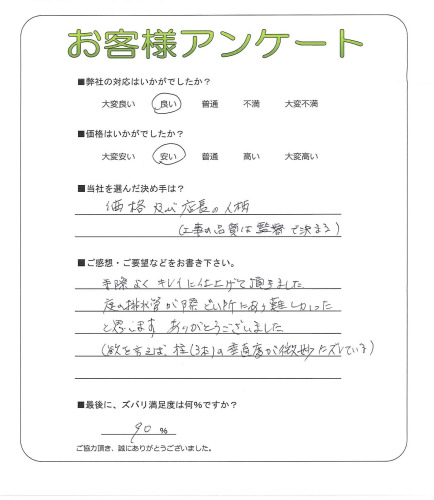 お客様アンケート
■弊社の対応はいかがでしたか？
大変良い　良い　普通　不満　大変不満
■価格はいかがでしたか？
大変安い　安い　普通　高い　大変高い
■当社を選んだ決め手は？
価格及び店長の人柄
(工事の品質は監督で決まる)
■ご感想・ご要望などをお書き下さい。
手際よくキレイに仕上げて頂きました
庭の排水管が際どい所にあり難しかった
と思います ありがとうございました
(欲を言えば、柱(3本)の垂直度が微妙にズレている)
■最後に、ズバリ満足度は何%ですか？
90 %
ご協力頂き、誠にありがとうございました。